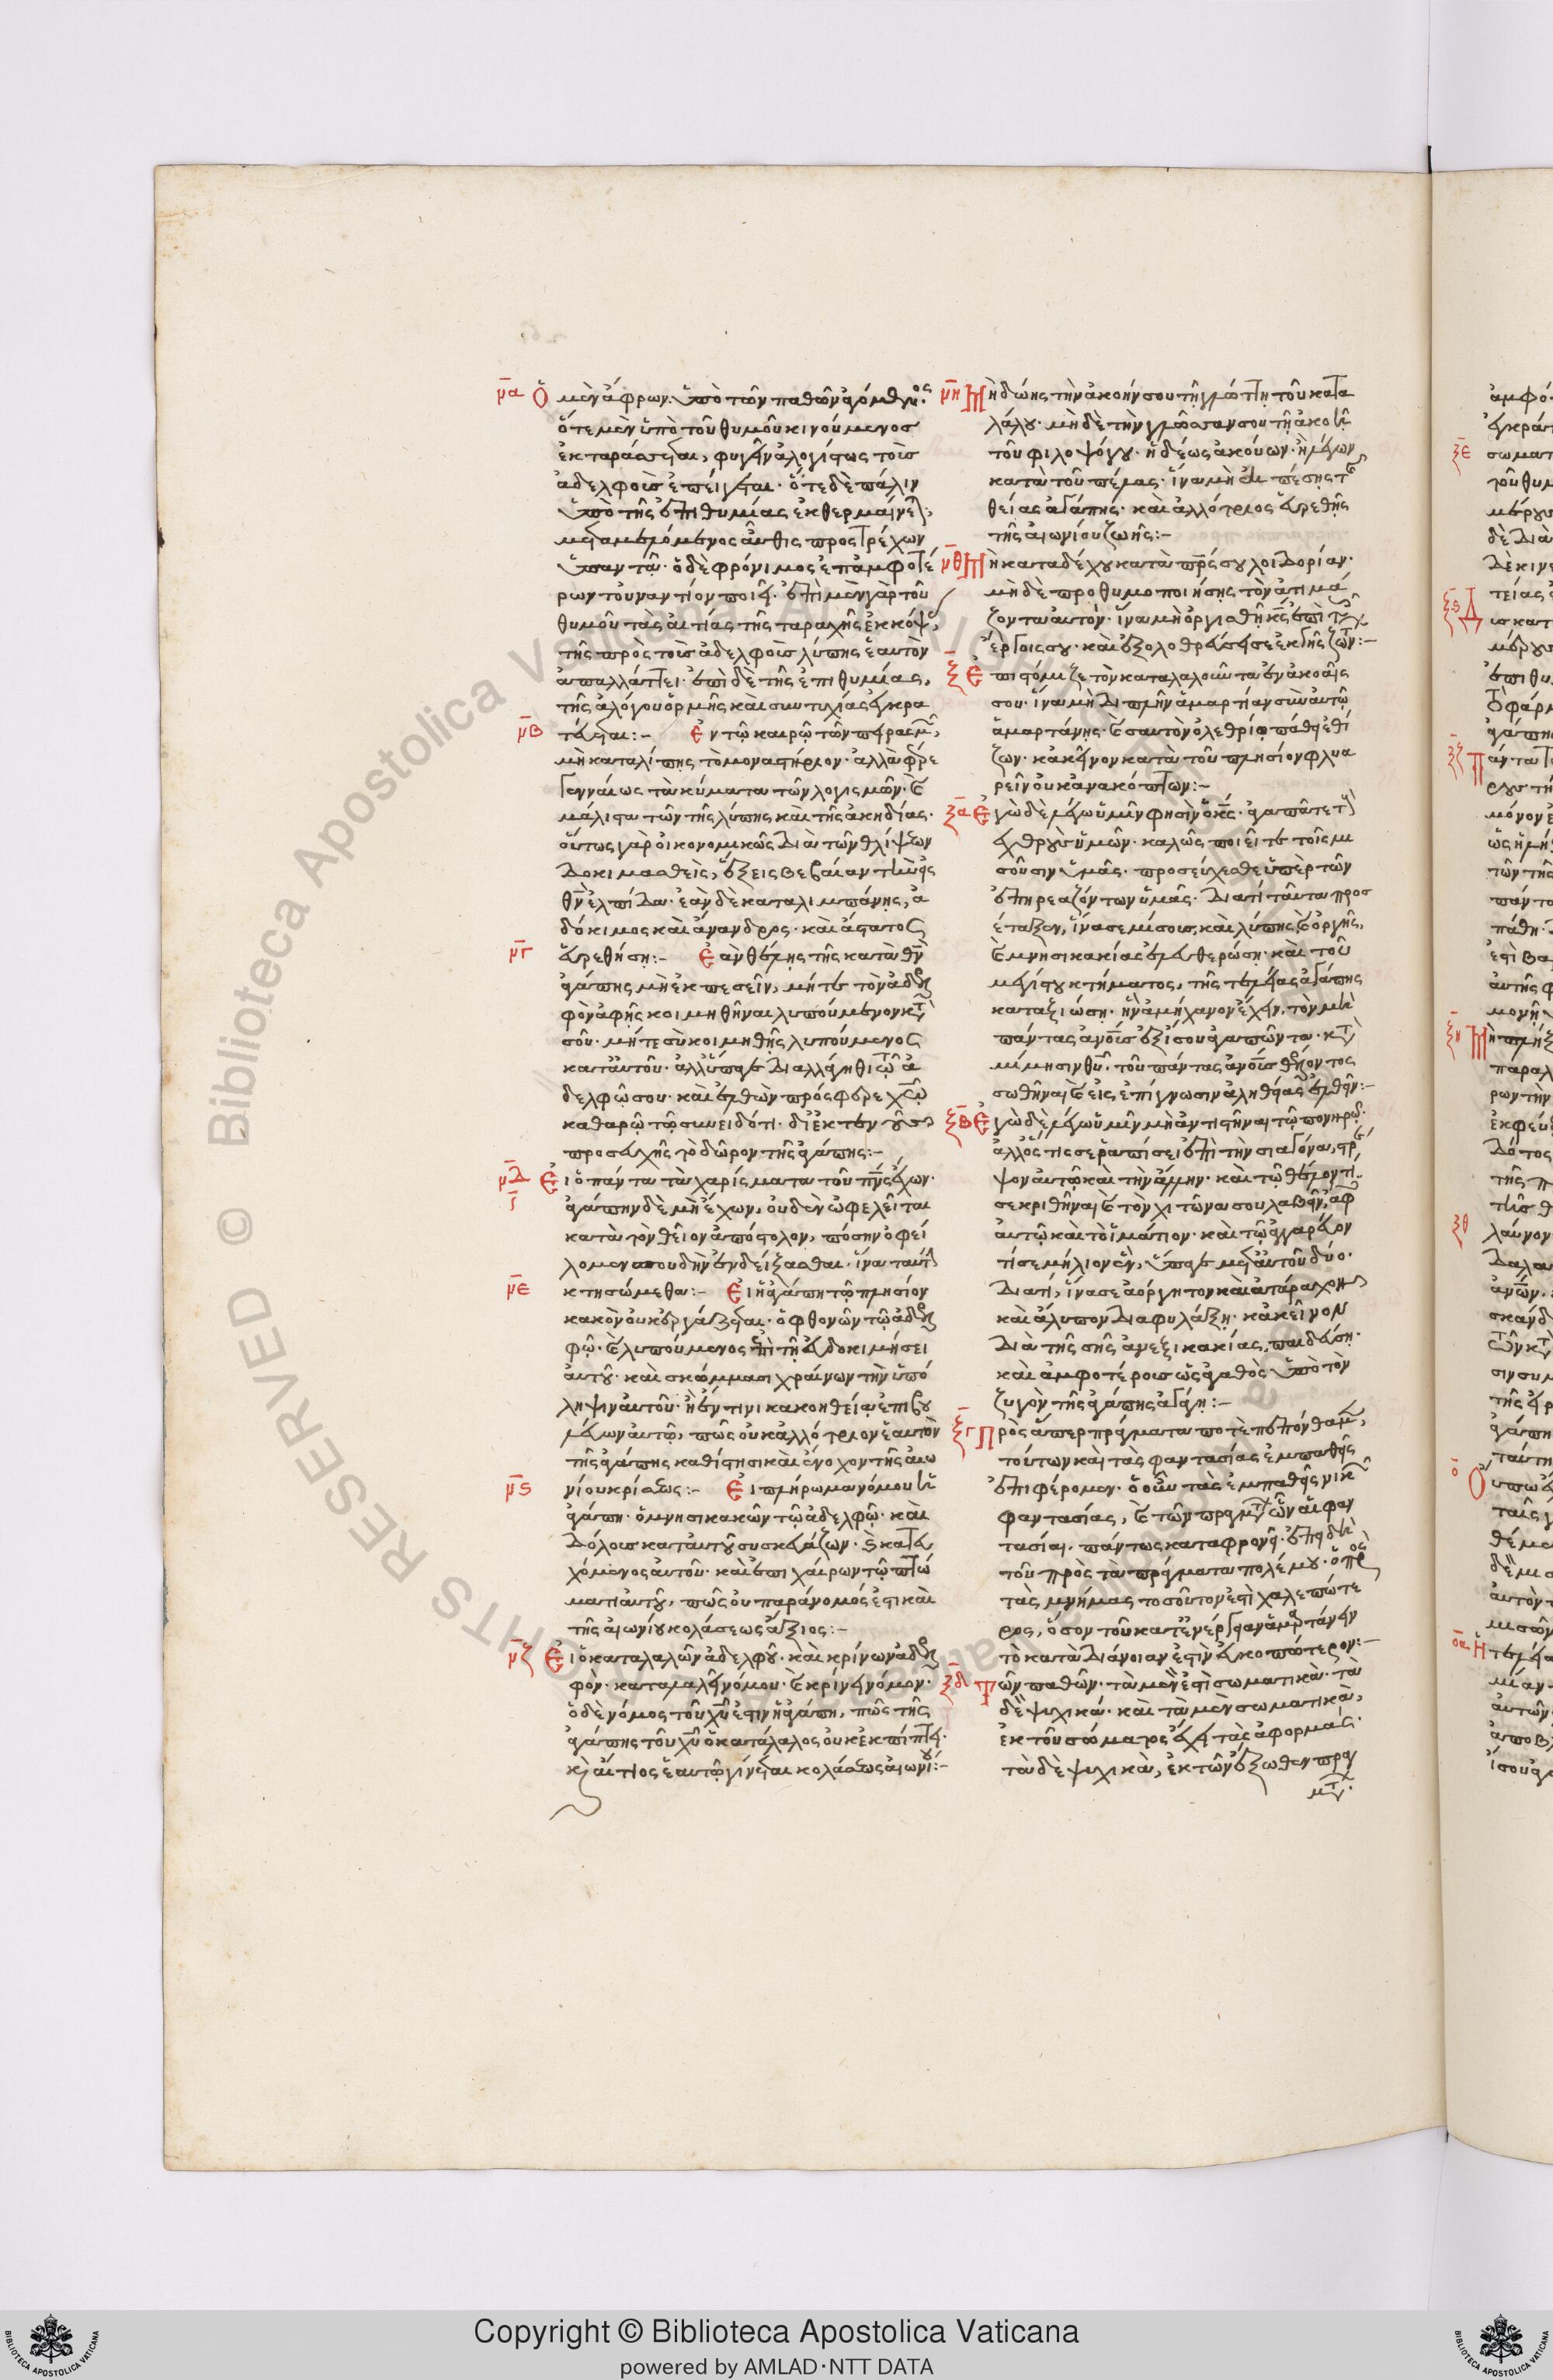 μα Ὁ μὲν ἄφρων ὑπὸ τῶν παθῶν ἀγόμενος·
ὅτε μὲν ὑπὸ τοῦ θυμοῦ κινούμενος
ἐκταράσσεται, φυγεῖν ἀλογίστως τοὺς
ἀδελφοὺς ἐπείγεται· ὅτε δὲ πάλιν
ὑπὸ τῆς ἐπιθυμίας ἐκθερμαίνεται,
μεταμελόμενος αὖθις προστρέχων
ὑπαντᾷ· ὁ δὲ φρόνιμος ἐπ' ἀμφοτέ
ρων τοὐναντίον ποιεῖ· ἐπὶ μὲν γὰρ τοῦ
θυμοῦ τὰς αἰτίας τῆς ταραχῆς ἐκκόψας,
τῆς πρὸς τοὺς ἀδελφοὺς λύπης ἑαυτὸν
ἀπαλλάττει· ἐπὶ δὲ τῆς ἐπιθυμίας,
τῆς ἀλόγου ὁρμῆς καὶ συντυχίας ἐγκρα
νβ τεύεται:- Ἐν τῷ καιρῷ τῶν πειρασμῶν,
μὴ καταλίπῃς τὸ μοναστήριον· ἀλλὰ φέρε
γενναίως τὰ κύματα τῶν λογισμῶν· καὶ
μάλιστα τῶν τῆς λύπης καὶ τῆς ἀκηδίας·
οὕτως γὰρ οἰκονομικῶς διὰ τῶν θλίψεων
δοκιμασθεὶς, ἕξεις βεβαίαν τὴν εἰς
θν ἐλπίδα· ἐὰν δὲ καταλιμπάνῃς, ἀ
δόκιμος καὶ ἄνανδρος· καὶ ἄστατος
νγ εὑρεθήσῃ:- Ἐὰν θέλῃς τῆς κατὰ θν
ἀγάπης μὴ ἐκπεσεῖν, μήτε τὸν ἀδελ
φὸν ἀφῇς κοιμηθῆναι λυπούμενον κατὰ
σοῦ· μήτε σὺ κοιμηθῇς λυπούμενος
κατ' αὐτοῦ· ἀλλ' ὕπαγε διαλλάγηθι τῷ ἀ
δελφῷ σου· καὶ ἐλθὼν πρόσφερε χῶ
καθαρῷ τῷ συνειδότι· δι' ἐκτενοῦς
προσευχῆς τὸ δῶρον τῆς ἀγάπης:-
νδ Εἰ ὁ πάντα τὰ χαρίσματα τοῦ πνς ἔχων·
ἀγάπην δὲ μὴ ἔχων, οὐδὲν ὠφελεῖται
κατὰ τὸν θεῖον ἀπόστολον, πόσην ὀφεί
λομεν σπουδὴν ἐνδείξασθαι· ἵνα ταύτην
νε κτησώμεθα:- Εἰ ἡ ἀγάπη τῷ πλησίον
κακὸν οὐκ ἐργάζεται· ὁ φθονῶν τῷ ἀδελ
φῷ· καὶ λυπούμενος ἐπὶ τῇ εὐδοκιμήσει
αὐτοῦ· καὶ σκώμμασι χραίνων τὴν ὑπό
ληψιν αὐτοῦ· ἢ ἔν τινι κακοηθείᾳ ἐπιβου
λεύων αὐτῷ, πῶς οὐκ ἀλλότριον ἑαυτὸν
τῆς ἀγάπης καθίστησι καὶ ἔνοχον τῆς αἰω
νς νίου κρίσεως:- Εἰ πλήρωμα νόμου ἡ
ἀγάπη· ὁ μνησικακῶν τῷ ἀδελφῷ· καὶ
δόλους κατ' αὐτοῦ συσκευάζων· καὶ κατευ
χόμενος αὐτοῦ· καὶ ἐπιχαίρων τῷ πτώ
ματι αὐτοῦ, πῶς οὐ παράνομός ἐστι καὶ
τῆς αἰωνίου κολάσεως ἄξιος:-
νζ Εἰ ὁ καταλαλῶν ἀδελφοῦ· καὶ κρίνων ἀδελ
φὸν· καταλαλεῖ νόμου· καὶ κρίνει νόμον·
ὁ δὲ νόμος τοῦ χυ ἐστιν ἡ ἀγάπη, πῶς τῆς
ἀγάπης τοῦ χυ ὁ κατάλαλος οὐκ ἐκπίπτει·
καὶ αἴτιος ἑαυτῷ γίνεται κολάσεως αἰωνίου:-
νη Μὴ δώῃς τὴν ἀκοήν σου τῇ γλώττῃ τοῦ κατα
λάλου· μὴ δὲ τὴν γλῶσσάν σου τῇ ἀκοῇ
τοῦ φιλοψόγου· ἡδέως ἀκούων· ἢ λέγων
κατὰ τοῦ πέλας· ἵνα μὴ ἐκπέσῃς τῆς
θείας ἀγάπης· καὶ ἀλλότριος εὑρεθῇς
τῆς αἰωνίου ζωῆς:-
νθ Μὴ καταδέχου κατὰ πρς σου λοιδορίαν·
μὴ δὲ προθυμοποιήσῃς τὸν ἀτιμά
ζοντα αὐτόν· ἵνα μὴ ὀργισθῇ κς ἐπὶ τοῖς
ἔργοις σου· καὶ ἐξολοθρεύσει σε ἐκ γῆς ζώντων:-
ξ Ἐπιστόμιζε τὸν καταλαλοῦντα ἐν ἀκοαῖς
σου· ἵνα μὴ διπλῆν ἁμαρτίαν σὺν αὐτῷ
ἁμαρτάνῃς· καὶ σαυτὸν ὀλεθρίῳ πάθει ἐθί
ζων· κἀκεῖνον κατὰ τοῦ πλησίον φλυα
ρεῖν οὐκ ἀνακόπτων:-
ξα Ἐγὼ δὲ λέγω ὑμῖν φησὶν ὁ κς· ἀγαπᾶτε τοὺς
ἐχθροὺς ὑμῶν· καλῶς ποιεῖτε τοῖς μι
σοῦσιν ὑμᾶς· προσεύχεσθε ὑπὲρ τῶν
ἐπηρεαζόντων ὑμᾶς· διατί ταῦτα προσ
έταξεν, ἵνα σε μίσους, καὶ λύπης καὶ ὀργῆς,
καὶ μνησικακίας ἐλευθερώσῃ· καὶ τοῦ
μεγίστου κτήματος, τῆς τελείας ἀγάπης
καταξιώσῃ· ἣν ἀμήχανον ἔχειν, τὸν μὴ
πάντας ἀνους ἐξίσου ἀγαπῶντα· κατὰ
μίμησιν θυ· τοῦ πάντας ἀνους θέλοντος
σωθῆναι καὶ εἰς ἐπίγνωσιν ἀληθείας ἐλθεῖν:-
ξβ Ἐγὼ δὲ λέγω ὑμῖν μὴ ἀντιστῆναι τῷ πονηρῷ·
ἀλλ' ὅς τις σε ῥαπίσει ἐπὶ τὴν σιαγόνα, στρέ
ψον αὐτῷ καὶ τὴν ἄλλην· καὶ τῷ θέλοντί
σε κριθῆναι καὶ τὸν χιτῶνα σου λαβεῖν, ἄφες
αὐτῷ καὶ τὸ ἱμάτιον· καὶ τῷ ἀγγαρεύον
τί σε μίλιον ἓν, ὕπαγε μετ' αὐτοῦ δύο·
διατί, ἵνα σε ἀόργητον καὶ ἀτάραχον
καὶ ἄλυπον διαφυλάξῃ· κἀκεῖνον
διὰ τῆς σῆς ἀνεξικακίας, παιδεύσῃ·
καὶ ἀμφοτέρους ὡς ἀγαθὸς ὑπὸ τὸν
ζυγὸν τῆς ἀγάπης ἀγάγῃ:-
ξγ Πρὸς ἅπερ πράγματα ποτὲ πεπόνθαμεν,
τούτων καὶ τὰς φαντασίας ἐμπαθεῖς
ἐπιφέρομεν· ὁ οὖν τὰς ἐμπαθεῖς νικῶν
φαντασίας, καὶ τῶν πραγμάτων ὧν αἱ φαν
τασίαι, πάντως καταφρονεῖ· ἐπειδὴ
τοῦ πρὸς τὰ πράγματα πολέμου· ὁ πρὸς
τὰς μνήμας τοσοῦτον ἐστὶ χαλεπώτε
ρος, ὅσον τοῦ κατ' ἐνέργειαν ἁμαρτάνειν
τὸ κατὰ διάνοιαν ἐστὶν εὐκοπώτερον:-
ξδ Τῶν παθῶν· τὰ μέν ἐστι σωματικὰ· τὰ
δὲ ψυχικά· καὶ τὰ μὲν σωματικὰ,
ἐκ τοῦ σώματος ἔχει τὰς ἀφορμάς·
τὰ δὲ ψυχικὰ, ἐκ τῶν ἔξωθεν πραγ
μάτων·
Copyright © Biblioteca Apostolica Vaticana
powered by AMLAD·NTT DATA